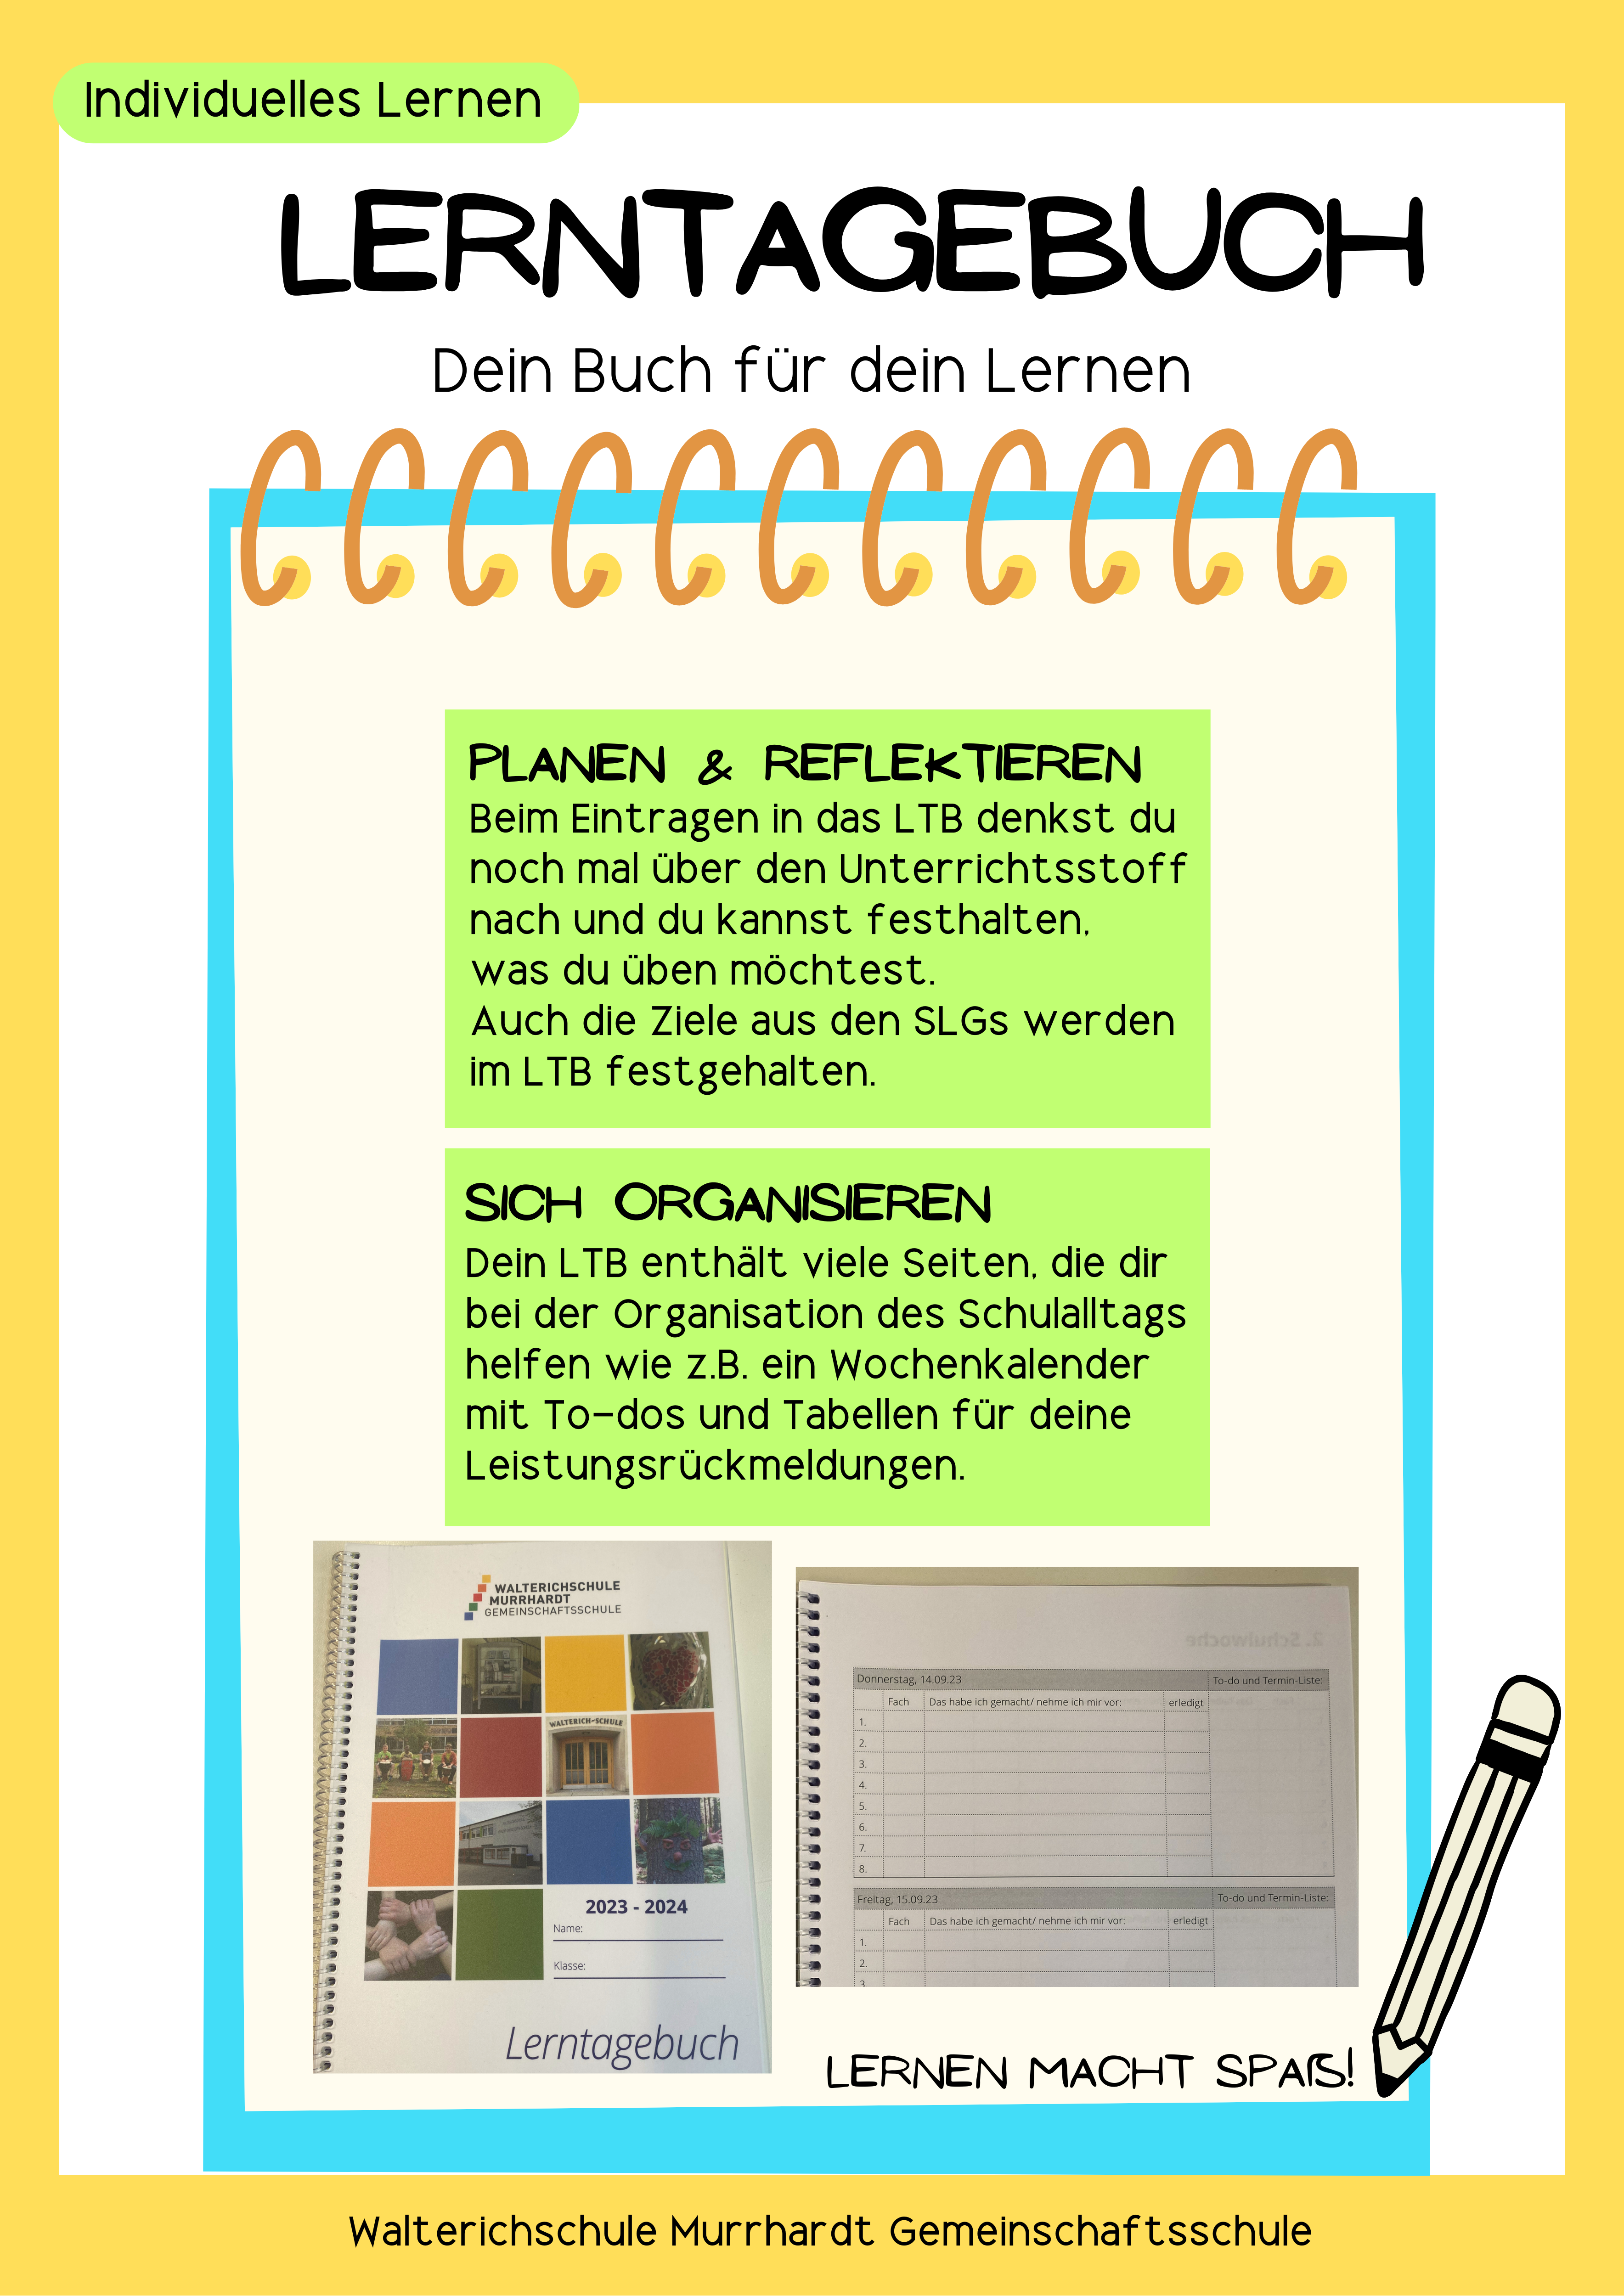 Individuelles Lernen
LERNTAGEBUCH
Dein Buch für dein Lernen
PLANEN & REFLEKTIEREN
Beim Eintragen in das LTB denkst du
noch mal über den Unterrichtsstoff
nach und du kannst festhalten,
was du üben möchtest.
Auch die Ziele aus den SLGs werden
im LTB festgehalten.
SICH ORGANISIEREN
Dein LTB enthält viele Seiten, die dir
bei der Organisation des Schulalltags
helfen wie z.B. ein Wochenkalender
mit To-dos und Tabellen für deine
Leistungsrückmeldungen.
WALTERICHSCHULE
MURRHARDT
GEMEINSCHAFTSSCHULE
WALTERICH-SCHULE
2023 - 2024
Name:
Klasse:
Lerntagebuch
2. Schulwoche
Donnerstag, 14.09.23 To-do und Termin-Liste:
Fach Das habe ich gemacht/ nehme ich mir vor: erledigt
1.
2.
3.
4.
5.
6.
7.
8.
Freitag, 15.09.23 To-do und Termin-Liste:
Fach Das habe ich gemacht/ nehme ich mir vor: erledigt
1.
2.
3.
LERNEN MACHT SPAß!
Walterichschule Murrhardt Gemeinschaftsschule